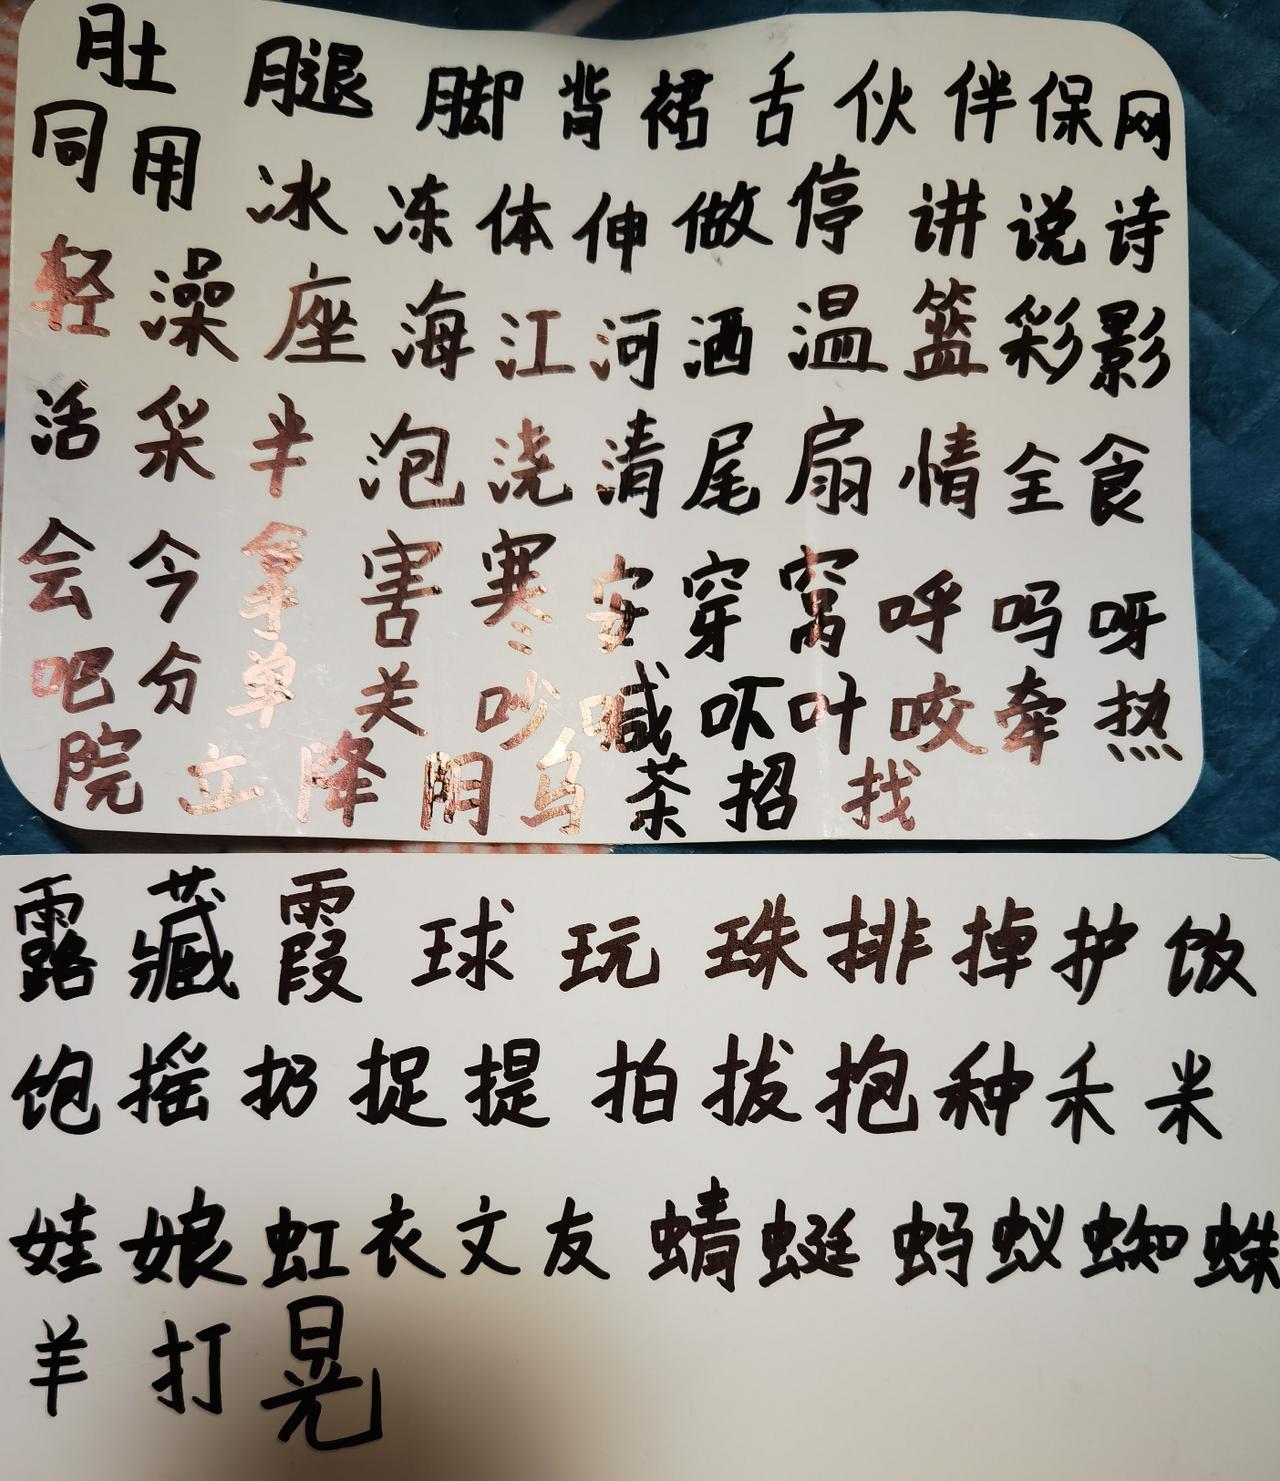 肚 腿 脚 背 裙 舌 伙 伴 保 网
同 用 冰 冻 体 伸 做 停 讲 说 诗
轻 澡 座 海 江 河 洒 温 篮 彩 影
活 采 半 泡 浇 清 尾 扇 情 全 食
会 今 拿 害 寒 安 穿 窝 呼 吗 呀
吧 分 单 关 吵 喊 吓 叶 咬 牵 热
院 立 降 阴 乌 茶 招 找
露 藏 霞 球 玩 珠 排 掉 护 饭
饱 摇 扔 捉 提 拍 拔 抱 种 禾 米
娃 娘 虹 衣 文 友 蜻 蜓 蚂 蚁 蜘 蛛
羊 打 晃